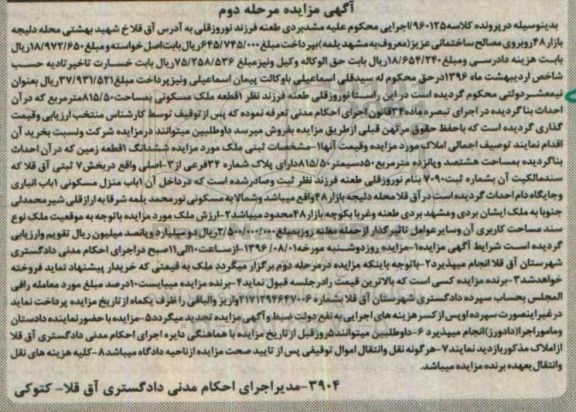 آگهی مزایده مرحله دوم
بدینوسیله درپرونده کلاسه ۹۶۰۱۳۵/اجرایی محکوم علیه مشدبردی طعنه فرزند نوروزقلی به آدرس آق قلا خ شهید بهشتی محله دلیجه
بازار۴۸روبروی مصالح ساختمانی عزیز(معروف به مشهد یلمه)بپرداخت مبلغ۶۴۵/۷۴۵/۰۰۰ریال بابت اصل خواسته و مبلغ۱۸/۹۷۲/۶۵۰ریال
بابت هزینه دادرسی و مبلغ ۱۸/۶۵۴/۲۴۰ریال بابت حق الوکاله وکیل ونیز مبلغ ۷۵/۲۵۸/۵۳۶ریال بابت خسارت تاخیر تادیه حسب
شاخص اردیبهشت ماه ۱۳۹۶درحق محکوم له سیدقلی اسماعیلی باوکالت پیمان اسماعیلی ونیز پرداخت مبلغ۳۷/۹۳۱/۵۲۱ریال بعنوان
نیمعشردولتی محکوم گردیده است در این راستا نوروزقلی طعنه فرزند نظر ۱قطعه ملک مسکونی بمساحت۸۱۵/۵۰مترمربع که درآن
احداث بناگردیده در اجرای تبصره ماده۳۴قانون اجرای احکام مدنی تعرفه نموده که پس از توقیف توسط کارشناس منتخب ارزیابی وقیمت
گذاری گردیده است که باحفظ حقوق مرتهن قبلی ازطریق مزایده بفروش میرسد داوطلبین میتوانند درمزایده شرکت ونسبت بخرید آن
اقدام نمایند توصیف اجمالی املاک مورد مزایده وقیمت آنها۱-مشخصات ثبتی ملک مورد مزایده ششدانگ ۱قطعه زمین که درآن احداث
بناگردیده بمساحت هشتصد وپانزده مترمربع۵۰دسیمتر۸۱۵/۵۰دارای پلاک شماره ۳۴فرعی از۳-اصلی واقع دربخش۷ ثبتی آق قلا که
سندمالکیت آن بشماره ثبت۷۰۹۰ بنام نوروزقلی طعنه فرزند نظر ثبت وصادرشده است که درداخل آن ۱باب منزل مسکونی ۱باب انباری
وجایگاه دام احداث گردیده است درآق قلا محله دلیجه بازار۴۸واقع میباشد وشمالا به مسکونی نورمحمد یلمه شرقا به ارازقلی شیرمحمدلی
جنوبا به ملک ایشان بردی ومشهد بردی طعنه وغربا بکوچه بازار۴۸محدودمیباشد۲-ارزش ملک مورد مزایده باتوجه به موقعیت ملک نوع
سند مساحت کاربری آن وسایرعوامل تاثیرگذار ازجمله مظنه روز بمبلغ۲/۵۰۰/۰۰۰/۰۰۰ریال دو میلیارد وپانصد میلیون ریال تقویم وارزیابی
گردیده است شرایط آگهی مزایده۱-مزایده روزدوشنبه مورخه۱۳۹۶/۰۸/۰۱-ازساعت۱۰الی۱۱صبح دراجرای احکام مدنی دادگستری
شهرستان آق قلا انجام میپذیرد۲-باتوجه باینکه مزایده درمرحله دوم برگزار میگردد ملک به قیمتی که خریدار پیشنهاد نماید فروخته
خواهدشد۳-برنده مزایده کسی است که بالاترین قیمت رادرجلسه قبول نماید۴-برنده مزایده میبایست۱۰درصد مبلغ مورد معامله رافی
المجلس بحساب سپرده دادگستری شهرستان آق قلا بشماره ۲۱۷۱۲۹۴۶۴۷۰۰۶واریز والباقی راظرف یکماه از تاریخ مزایده پرداخت نماید
درغیراینصورت سپرده اوپس از کسر هزینه های اجرایی به نفع دولت ضبط وآگهی مزایده تجدید میگردد۵-مزایده با حضور نماینده دادستان
وماموراجرا(دادورز)انجام میپذیرد ۶-داوطلبین میتوانند۵روزقبل از تاریخ مزایده با هماهنگی دایره اجرای احکام مدنی دادگستری آق قلا
ازاملاک مذکوربازدید نمایند۷-هرگونه نقل وانتقال اموال توقیفی پس از تایید صحت مزایده ازناحیه دادگاه میباشد۸-کلیه هزینه های نقل
وانتقال بعهده برنده مزایده میباشد.
۳۹۰۴-مدیراجرای احکام مدنی دادگستری آق قلا- کتوکی